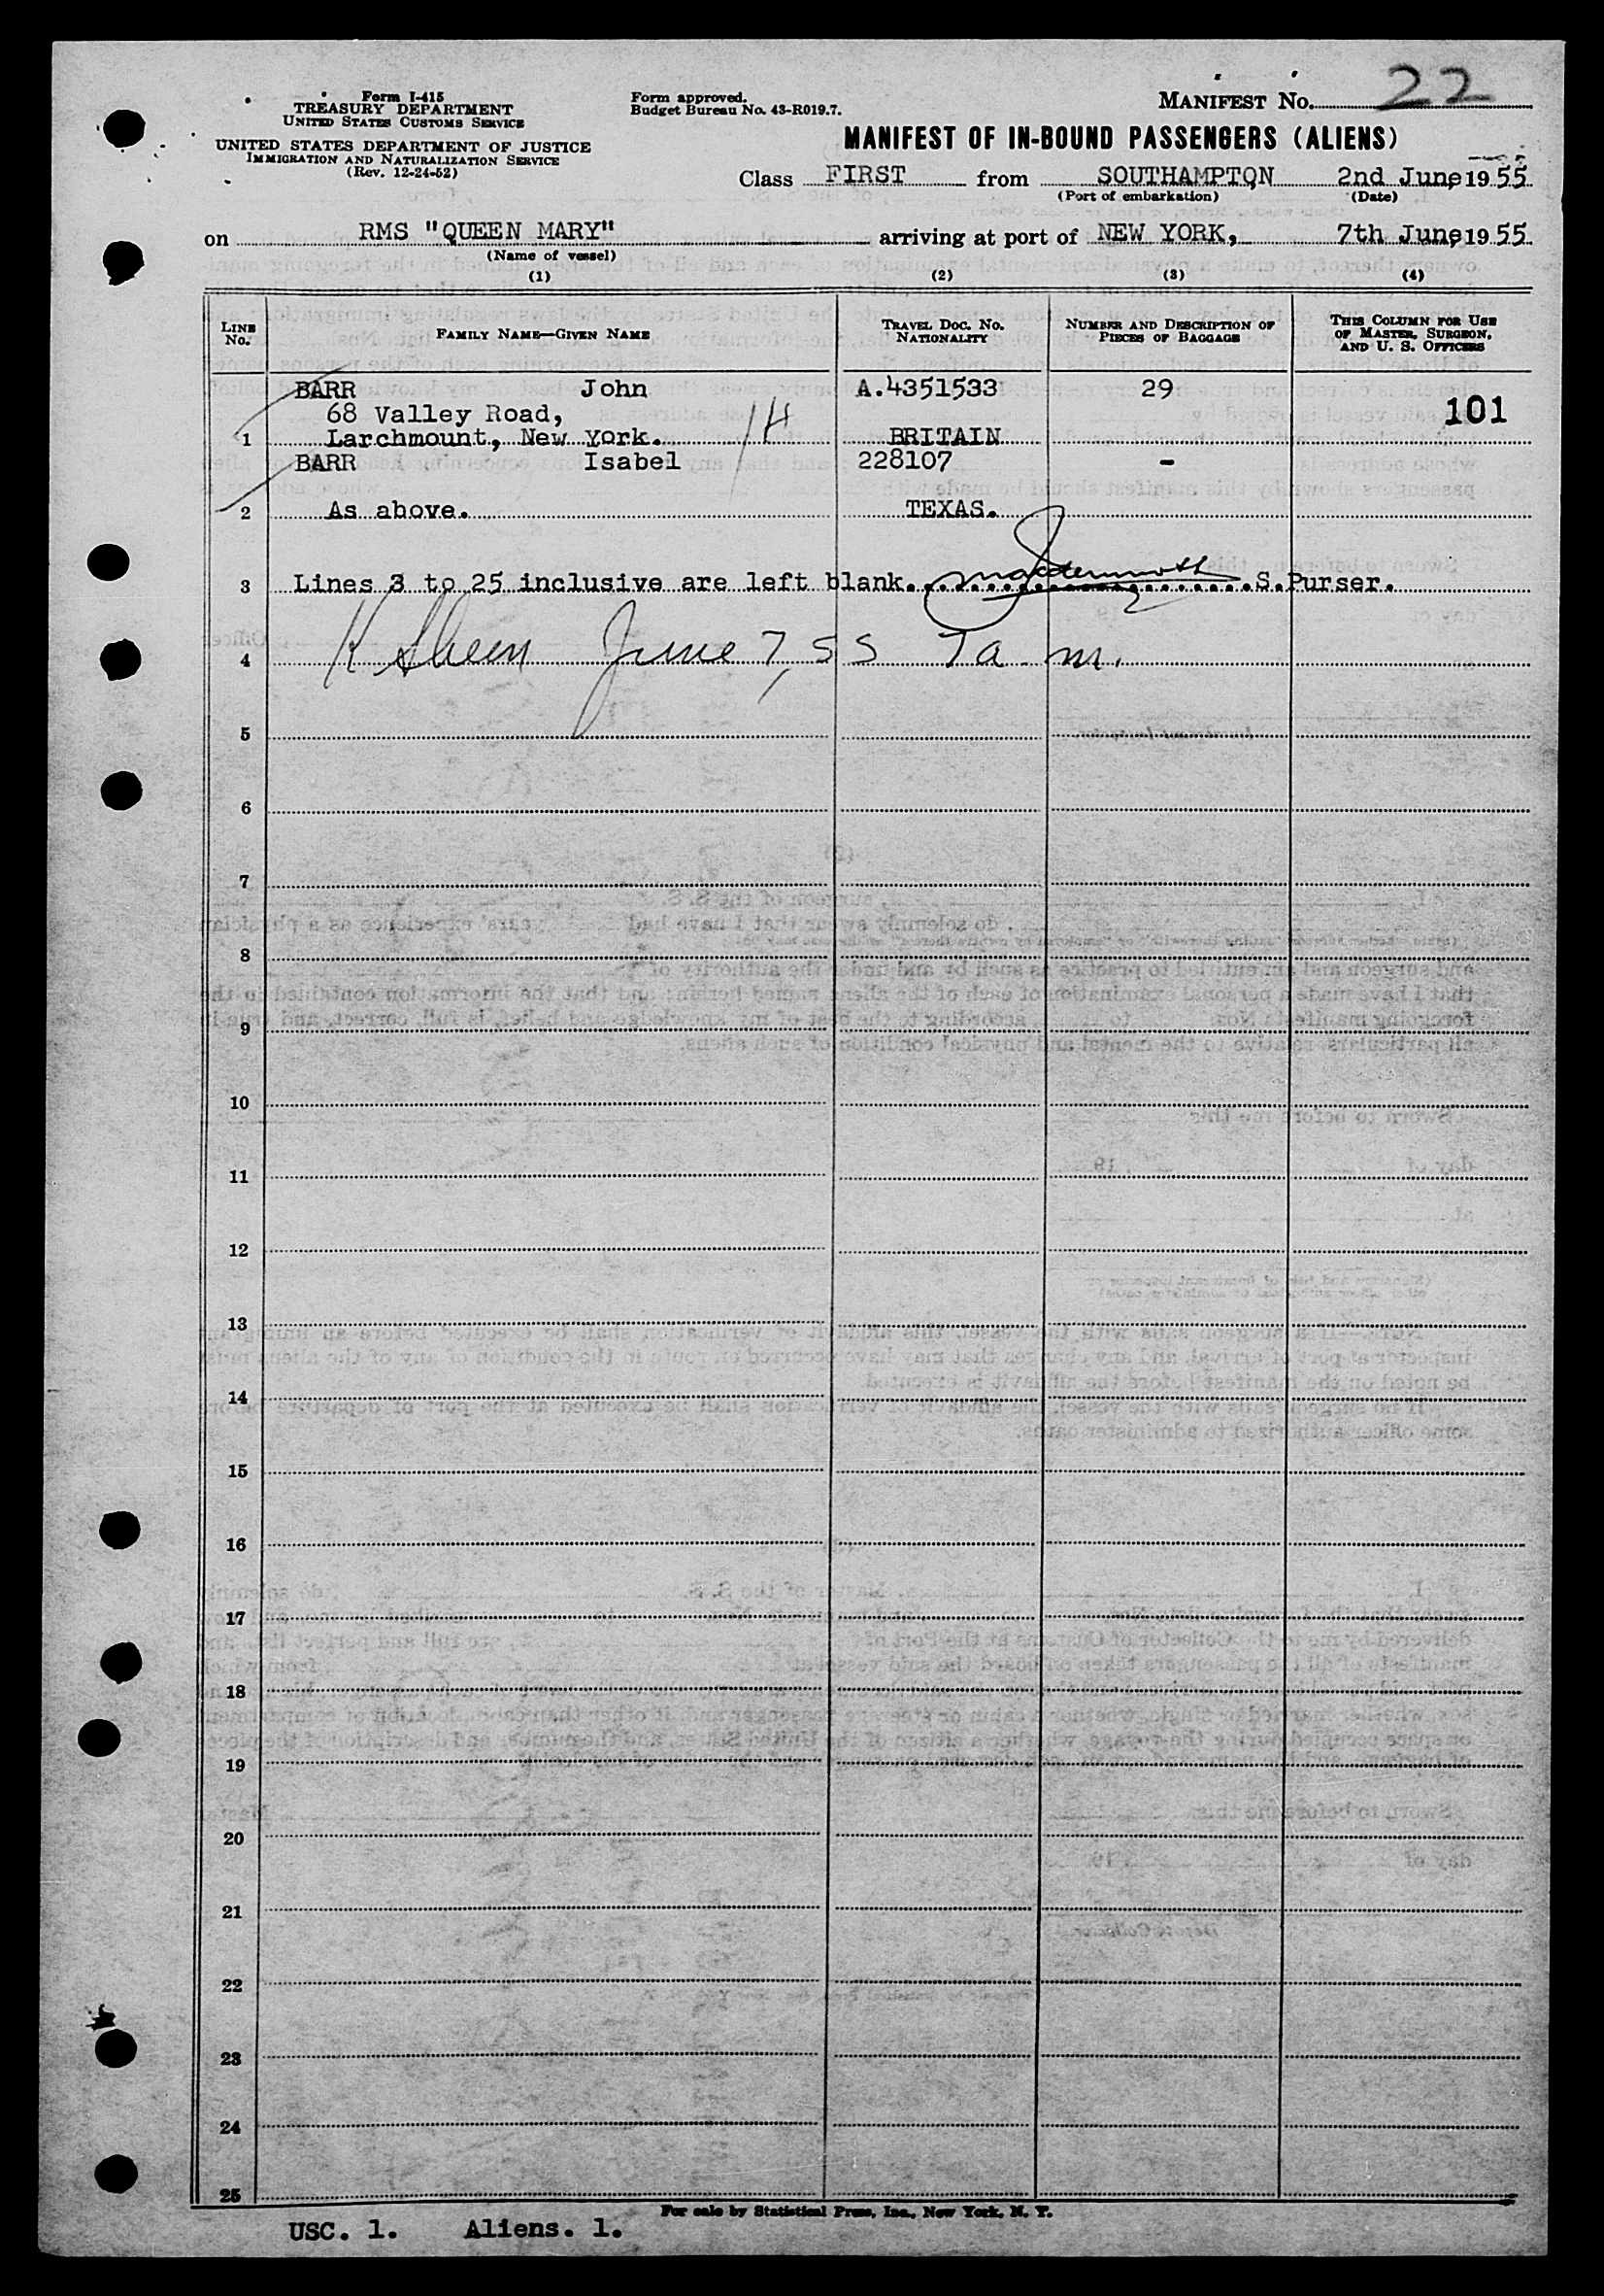 Form I-415
TREASURY DEPARTMENT
UNITED STATES CUSTOMS SERVICE
UNITED STATES DEPARTMENT OF JUSTICE
IMMIGRATION AND NATURALIZATION SERVICE
(Rev. 12-24-52)
Form approved.
Budget Bureau No. 43-R019.7.
MANIFEST No. 22
MANIFEST OF IN-BOUND PASSENGERS (ALIENS)
Class FIRST from SOUTHAMPTON 2nd June, 1955
(Port of embarkation) (Date)
on RMS "QUEEN MARY" arriving at port of NEW YORK, 7th June, 1955
(Name of vessel)
(1) (2) (3) (4)
LINE No. FAMILY NAME—GIVEN NAME TRAVEL DOC. No. NATIONALITY NUMBER AND DESCRIPTION OF PIECES OF BAGGAGE THIS COLUMN FOR USE OF MASTER, SURGEON, AND U. S. OFFICERS
BARR John A.4351533 29
68 Valley Road, 14 101
1 Larchmount, New York. BRITAIN
BARR Isabel 228107 -
2 As above. TEXAS.
3 Lines 3 to 25 inclusive are left blank. S.Purser.
4 K Sheen June 7, 55 7a m.
5
6
7
8
9
10
11
12
13
14
15
16
17
18
19
20
21
22
23
24
25
For sale by Statistical Press, Inc., New York, N. Y.
USC. 1. Aliens. 1.